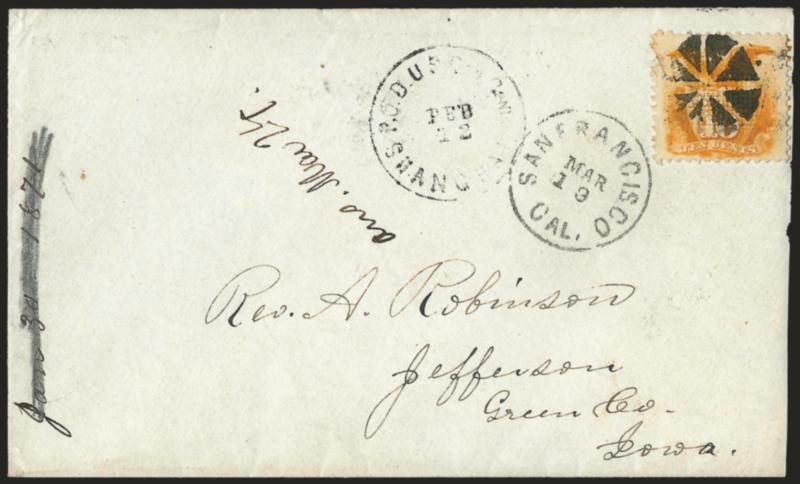 P.O.D.U.S. CON
SHANGHAI
FEB
12
SAN FRANCISCO
MAR
19
CAL.
TEN CENTS
Jan 30 1871
ans. Mar 24.
Rev. A. Robinson
Jefferson
Green Co.
Iowa.